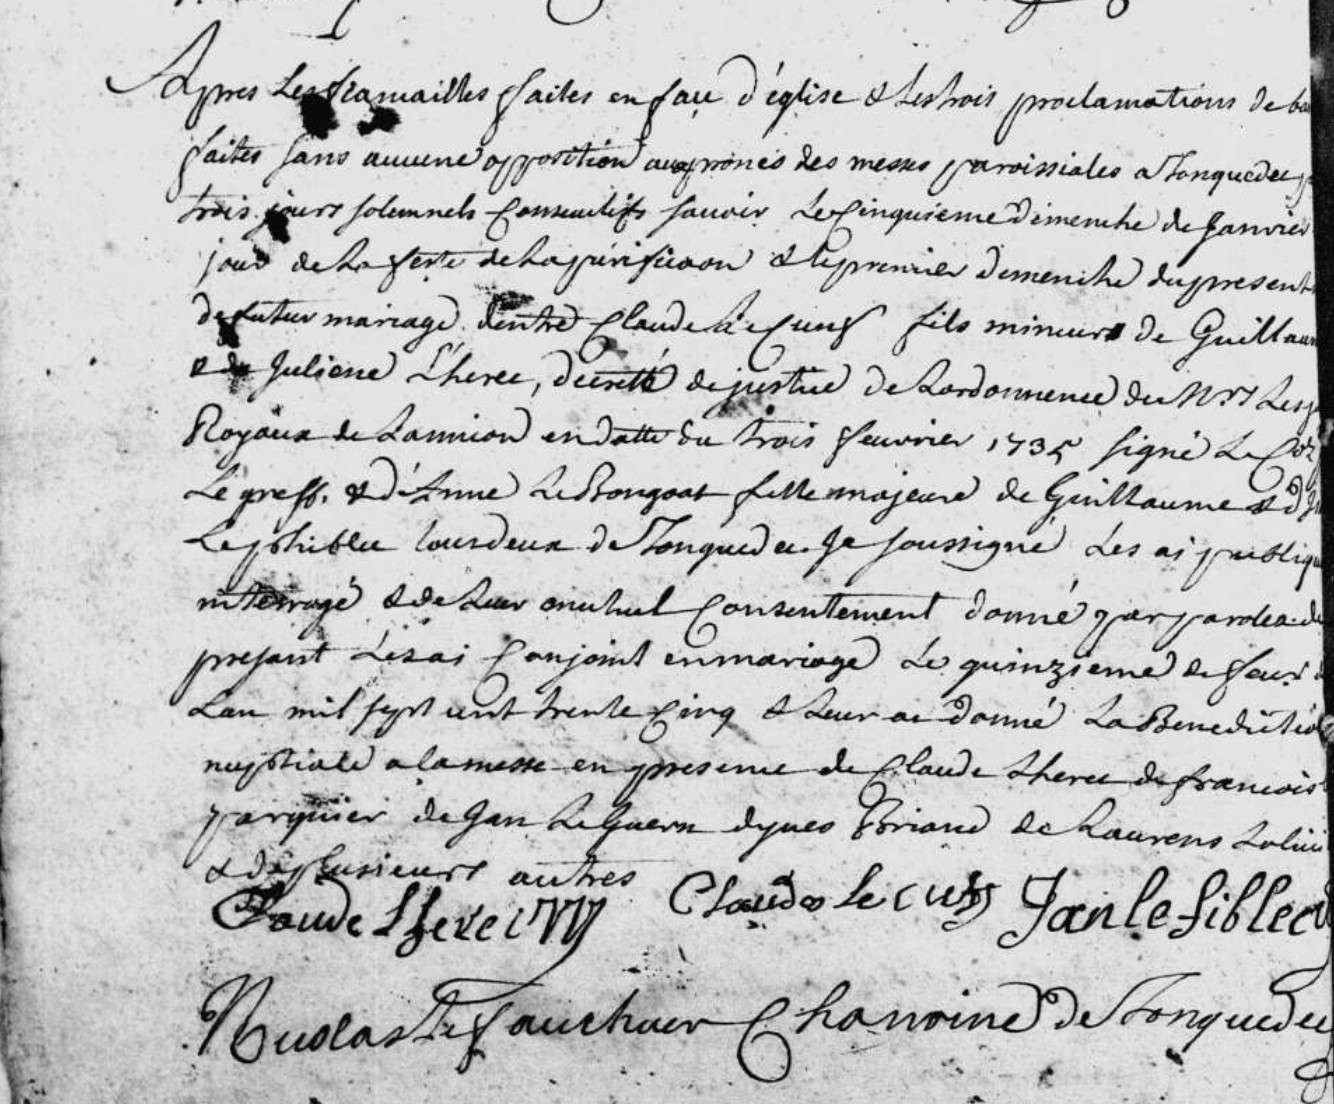 Apres Les fiancailles faites en face d'église & Les trois proclamations de
faites sans aucune opposition aux prones des messes paroissiales a Tonquedec
trois jours solemnels Consecutifs sauoir Le Cinquieme Dimenche de Janvier
jour de La feste de La purification & le premier Dimenche du present
de futur mariage dentre Claude Le Cunf fils mineur de Guillau
& de Juliene L'heree, decretté de justice De Lordonnence de Mrs Les
Royaux de Lannion en datte du trois feuvrier 1735 signé Le
Le greff. & d'Anne Le Bongoat fille majeure de Guillaume & d
Le phiblec tous deux de Tonquedec. Je soussigné Les ai publiq
interrogé & de Leur mutuel Consentement donné par paroles de
presant Les ai Conjoint en mariage Le quinzieme de feuri
Lan mil sept cent trente Cinq & Leur ai donné La Benedictio
nuptiale a la messe en presence de Claude Lheree de francois
parquier de Jan Le Guern dyues Briand de Laurens
& de plusieurs autres
Claude Lhere Claude le cunf Jan le fiblec
Nicolas Le faucheur Chanoine de Tonquedec